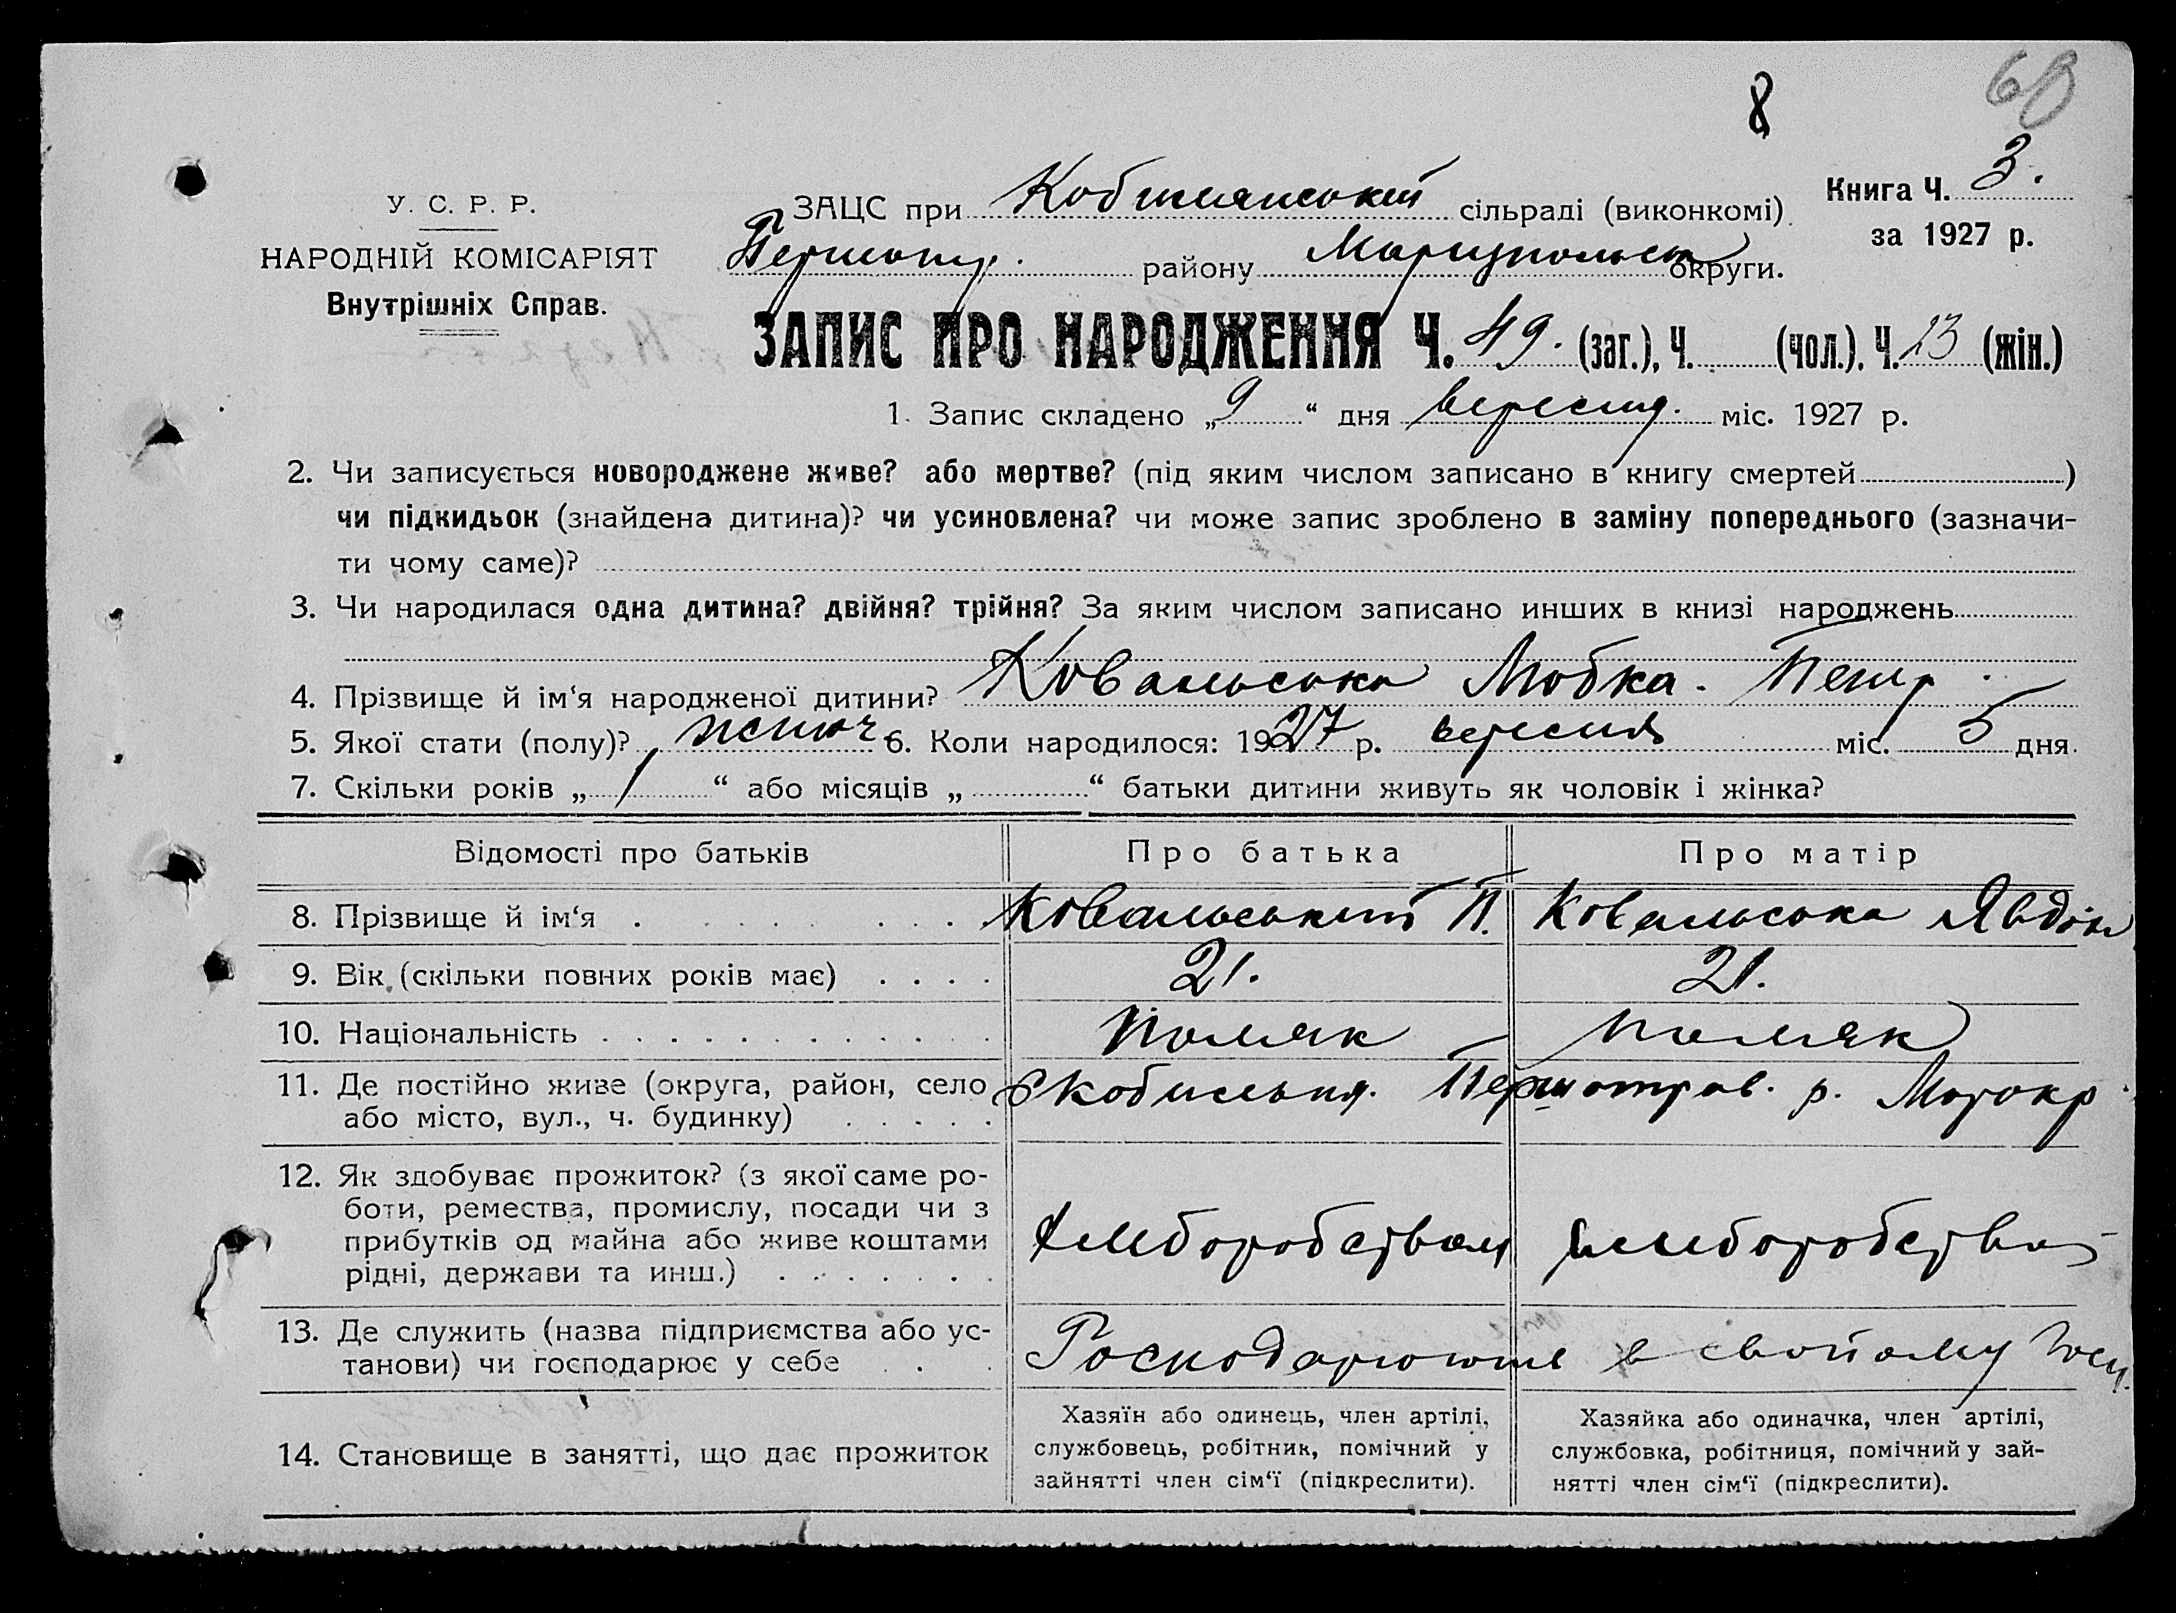 8
60
У. С. Р. Р.
НАРОДНІЙ КОМІСАРІЯТ
Внутрішніх Справ.
ЗАЦС при сільраді (виконкомі)
району округи.
Книга Ч. 3.
за 1927 р.
ЗАПИС ПРО НАРОДЖЕННЯ Ч. 49. (заг.), Ч. (чол.). Ч. 23 (жін.)
1. Запис складено „ 9 “ дня вересня. міс. 1927 р.
2. Чи записується новороджене живе? або мертве? (під яким числом записано в книгу смертей )
чи підкидьок (знайдена дитина)? чи усиновлена? чи може запис зроблено в заміну попереднього (зазначи-
ти чому саме)?
3. Чи народилася одна дитина? двійня? трійня? За яким числом записано инших в книзі народжень
4. Прізвище й ім‘я народженої дитини? Ковальська Любка. Петр.
5. Якої стати (полу)? жіноч 6. Коли народилося: 1927 р. вересня міс. 5 дня
7. Скільки років „ 1 “ або місяців „ “ батьки дитини живуть як чоловік і жінка?
Відомості про батьків Про батька Про матір
8. Прізвище й ім‘я Ковальський П. Ковальська Явдок
9. Вік (скільки повних років має) 21. 21.
10. Національність Поляк поляк
11. Де постійно живе (округа, район, село
або місто, вул., ч. будинку) Першотрав. р.
12. Як здобуває прожиток? (з якої саме ро-
боти, ремества, промислу, посади чи з
прибутків од майна або живе коштами
рідні, держави та инш.) хліборобством хліборобство
13. Де служить (назва підприємства або ус-
танови) чи господарює у себе Господарюють в свойому госп.
14. Становище в занятті, що дає прожиток
Хазяїн або одинець, член артілі,
службовець, робітник, помічний у
зайнятті член сім‘ї (підкреслити).
Хазяйка або одиначка, член артілі,
службовка, робітниця, помічний у зай-
нятті член сім‘ї (підкреслити).